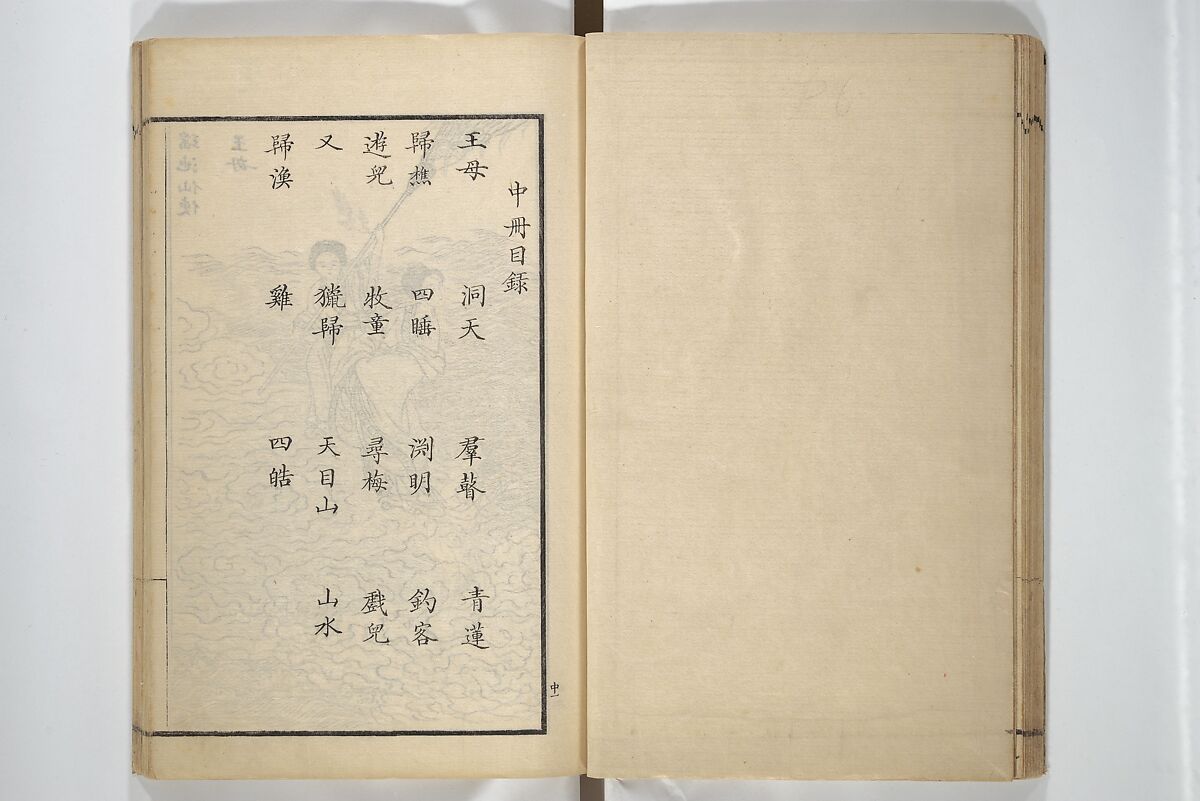 中冊目録
王母 洞天 羣瞽 青蓮
歸樵 四睡 渕明 釣客
遊兒 牧童 尋梅 戲兒
又 獵歸 天目山 山水
歸漁 雞 四皓
中一